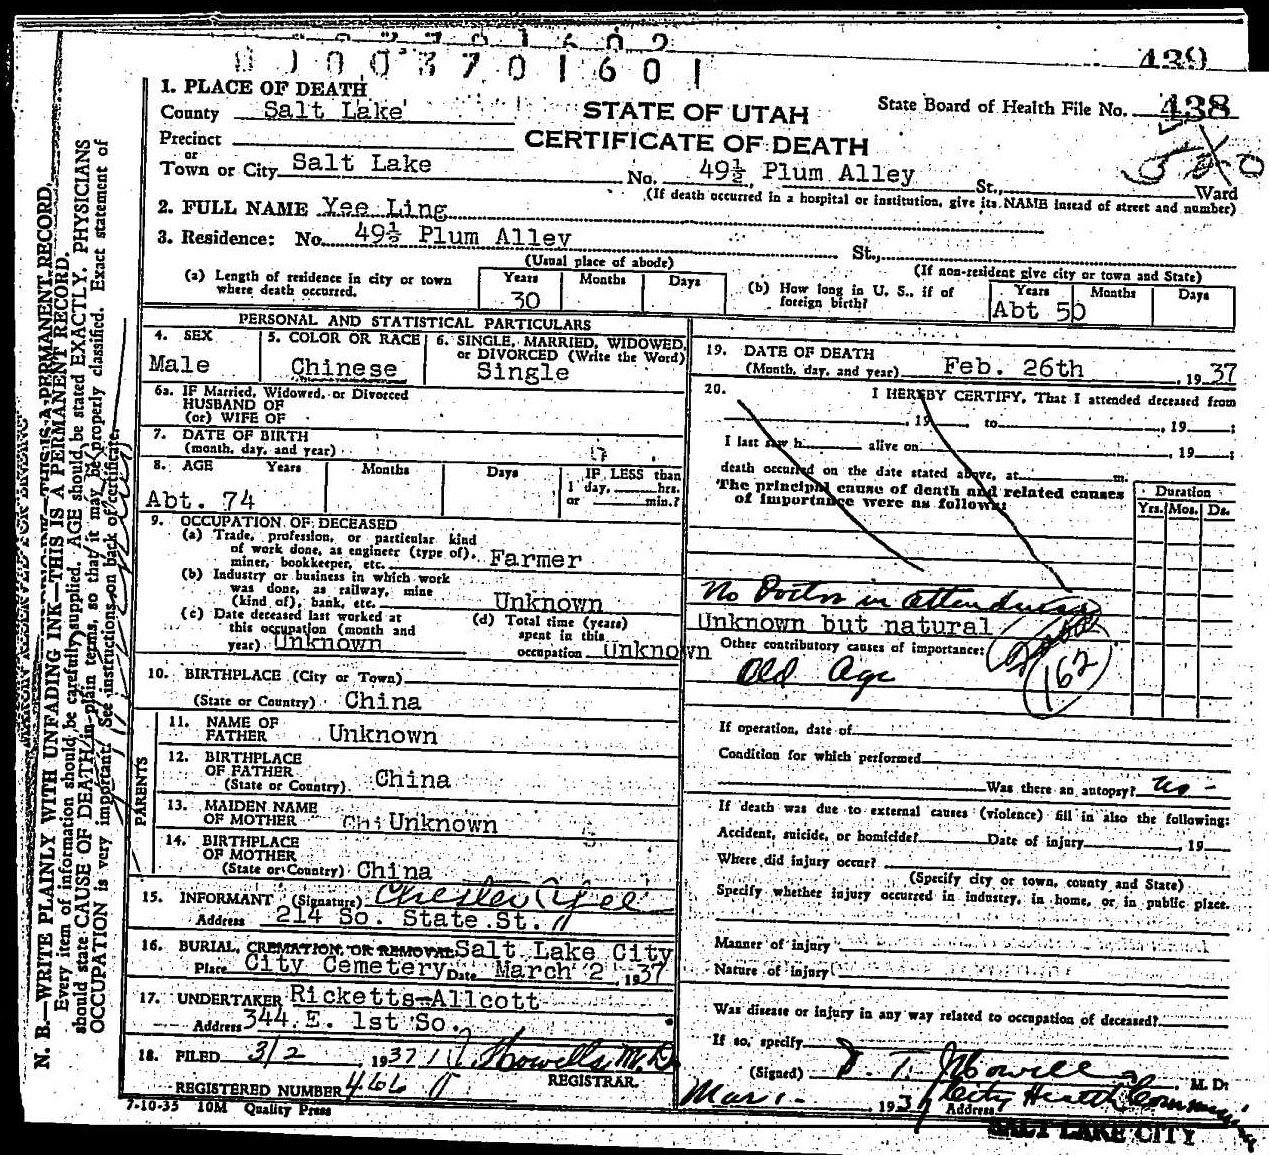 439
01003701601
1. PLACE OF DEATH
County Salt Lake
STATE OF UTAH
CERTIFICATE OF DEATH
State Board of Health File No. 438
Precinct
or
Town or City Salt Lake No. 49½ Plum Alley St., Ward
(If death occurred in a hospital or institution, give its NAME instead of street and number)
2. FULL NAME Yee Ling
3. Residence: No. 49½ Plum Alley St.,
(Usual place of abode) (If non-resident give city or town and State)
(a) Length of residence in city or town where death occurred. Years 30 Months Days
(b) How long in U. S., if of foreign birth? Years Abt 50 Months Days
PERSONAL AND STATISTICAL PARTICULARS
4. SEX Male
5. COLOR OR RACE Chinese
6. SINGLE, MARRIED, WIDOWED, or DIVORCED (Write the Word) Single
6a. IF Married, Widowed, or Divorced
HUSBAND OF
(or) WIFE OF
7. DATE OF BIRTH
(month, day, and year)
8. AGE Years Months Days IF LESS than
1 day, hrs.
or min.?
Abt. 74
9. OCCUPATION OF DECEASED
(a) Trade, profession, or particular kind
of work done, as engineer (type of),
miner, bookkeeper, etc. Farmer
(b) Industry or business in which work
was done, as railway, mine
(kind of), bank, etc. Unknown
(c) Date deceased last worked at
this occupation (month and
year) Unknown
(d) Total time (years)
spent in this
occupation Unknown
10. BIRTHPLACE (City or Town)
(State or Country) China
PARENTS
11. NAME OF
FATHER Unknown
12. BIRTHPLACE
OF FATHER
(State or Country) China
13. MAIDEN NAME
OF MOTHER Chi Unknown
14. BIRTHPLACE
OF MOTHER
(State or Country) China
15. INFORMANT (Signature) Chester Yee
Address 214 So. State St.
16. BURIAL, CREMATION, OR REMOVAL Salt Lake City
Place City Cemetery Date March 2, 1937
17. UNDERTAKER Ricketts-Allcott
Address 344 E. 1st So.
18. FILED 3/2 1937 Howells M.D.
REGISTRAR.
REGISTERED NUMBER 466
7-10-35 10M Quality Press
19. DATE OF DEATH
(Month, day, and year) Feb. 26th, 1937
20. I HEREBY CERTIFY, That I attended deceased from
, 19 to , 19 ;
I last saw h alive on , 19 ;
death occurred on the date stated above, at m.
The principal cause of death and related causes
of importance were as follows:
Duration
Yrs. Mos. Ds.
No Doctor in attendance
Unknown but natural
Other contributory causes of importance:
Old Age
162
If operation, date of
Condition for which performed
Was there an autopsy? no -
If death was due to external causes (violence) fill in also the following:
Accident, suicide, or homicide? Date of injury , 19
Where did injury occur?
(Specify city or town, county and State)
Specify whether injury occurred in industry, in home, or in public place.
Manner of injury
Nature of injury
Was disease or injury in any way related to occupation of deceased?
If so, specify
(Signed) T. J. Howells, M. D.
Mar 1 - , 1937 Address City Health Commr
SALT LAKE CITY
N. B.—WRITE PLAINLY WITH UNFADING INK—THIS IS A PERMANENT RECORD.
Every item of information should be carefully supplied. AGE should be stated EXACTLY. PHYSICIANS
should state CAUSE OF DEATH in plain terms, so that it may be properly classified. Exact statement of
OCCUPATION is very important. See instructions on back of certificate.